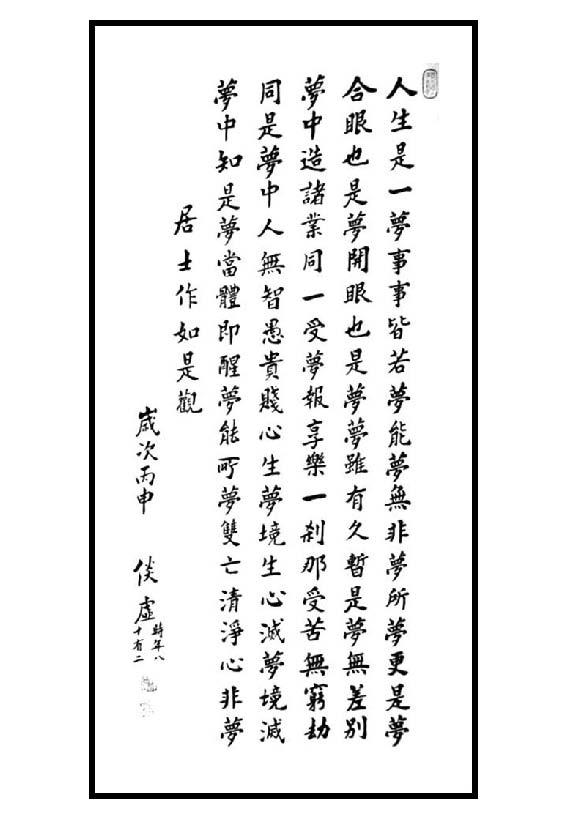 人生是一夢事事皆若夢能夢無非夢所夢更是夢
合眼也是夢開眼也是夢夢雖有久暫是夢無差別
夢中造諸業同一受夢報享樂一刹那受苦無窮劫
同是夢中人無智愚貴賤心生夢境生心滅夢境滅
夢中知是夢當體即醒夢能所夢雙亡清淨心非夢
居士作如是觀
歲次丙申 倓虛
時年八
十有二